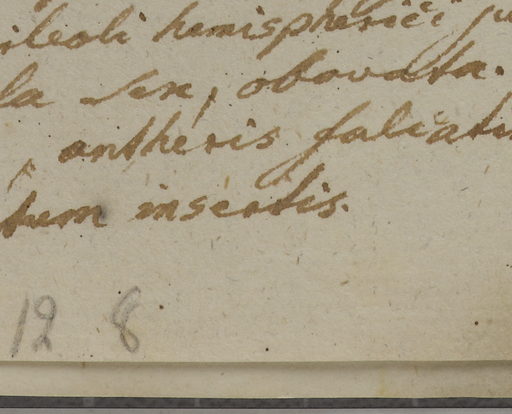 ileoli hemispherici ju
la sex, obovata.
, antheris faliatis
tum insertis.
12 8